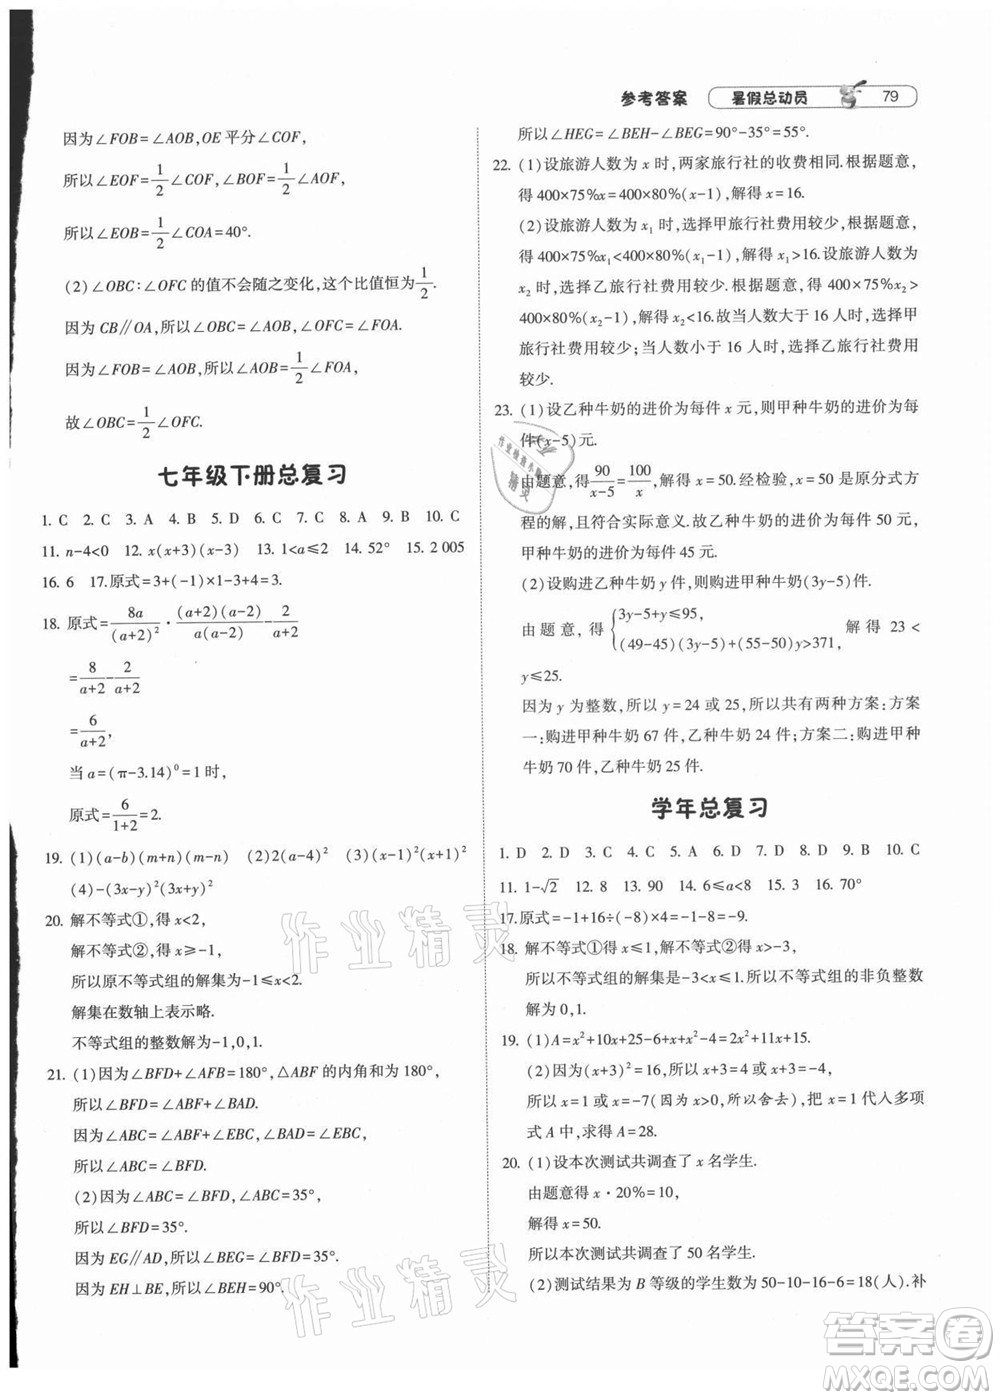 参考答案 暑假总动员 79
因为∠FOB=∠AOB,OE 平分∠COF,
所以∠EOF=1/2∠COF,∠BOF=1/2∠AOF,
所以∠EOB=1/2∠COA=40°.
(2)∠OBC∶∠OFC 的值不会随之变化,这个比值恒为1/2.
因为 CB∥OA,所以∠OBC=∠AOB,∠OFC=∠FOA.
因为∠FOB=∠AOB,所以∠AOB=1/2∠FOA.
故∠OBC=1/2∠OFC.
七年级下册总复习
1. C 2. C 3. A 4. A 5. D 6. D 7. C 8. A 9. B 10. C
11. n-4<0 12. x(x+3)(x-3) 13. 1<a≤2 14. 52° 15. 2 005
16. 6 17.原式=3+(-1)×1-3+4=3.
18. 原式=8a/(a+2)²·(a+2)(a-2)/a(a-2)-2/(a+2)
=8/(a+2)-2/(a+2)
=6/(a+2),
当 a=(π-3.14)⁰=1 时,
原式=6/(1+2)=2.
19. (1)(a-b)(m+n)(m-n) (2)2(a-4)² (3)(x-1)²(x+1)²
(4)-(3x-y)²(3x+y)²
20. 解不等式①,得 x<2,
解不等式②,得 x≥-1,
所以原不等式组的解集为-1≤x<2.
解集在数轴上表示略.
不等式组的整数解为-1,0,1.
21. (1)因为∠BFD+∠AFB=180°,△ABF 的内角和为180°,
所以∠BFD=∠ABF+∠BAD.
因为∠ABC=∠ABF+∠EBC,∠BAD=∠EBC,
所以∠ABC=∠BFD.
(2)因为∠ABC=∠BFD,∠ABC=35°,
所以∠BFD=35°.
因为 EG∥AD,所以∠BEG=∠BFD=35°.
因为 EH⊥BE,所以∠BEH=90°.
所以∠HEG=∠BEH-∠BEG=90°-35°=55°.
22. (1)设旅游人数为 x 时,两家旅行社的收费相同.根据题意,
得 400×75%x=400×80%(x-1),解得 x=16.
(2)设旅游人数为 x₁ 时,选择甲旅行社费用较少.根据题
意,得400×75%x₁<400×80%(x₁-1),解得 x₁>16.设旅游人数为
x₂ 时,选择乙旅行社费用较少.根据题意,得400×75%x₂>
400×80%(x₂-1),解得 x₂<16.故当人数大于 16 人时,选择甲
旅行社费用较少;当人数小于 16 人时,选择乙旅行社费用
较少.
23. (1)设乙种牛奶的进价为每件 x 元,则甲种牛奶的进价为每
件(x-5)元.
由题意,得90/(x-5)=100/x,解得 x=50.经检验,x=50 是原分式方
程的解,且符合实际意义.故乙种牛奶的进价为每件50元,
甲种牛奶的进价为每件 45 元.
(2)设购进乙种牛奶 y 件,则购进甲种牛奶(3y-5)件.
由题意,得{3y-5+y≤95, (49-45)(3y-5)+(55-50)y>371, 解得 23<
y≤25.
因为 y 为整数,所以 y=24 或 25,所以共有两种方案:方案
一:购进甲种牛奶 67 件,乙种牛奶 24 件;方案二:购进甲种
牛奶 70 件,乙种牛奶 25 件.
学年总复习
1. D 2. D 3. C 4. C 5. A 6. D 7. A 8. D 9. B 10. C
11. 1-√2 12. 8 13. 90 14. 6≤a<8 15. 12 16. 70°
17.原式=-1+16÷(-8)×4=-1-8=-9.
18. 解不等式①得 x≤1,解不等式②得 x>-3,
所以不等式组的解集是-3<x≤1,所以不等式组的非负整数
解为 0,1.
19. (1)A=x²+10x+25-6+x+x²=2x²+11x+15.
(2)因为(x+3)²=16,所以 x+3=±4,
所以 x=1 或-7(因为 x>0,所以舍去),把 x=1 代入多项
式 A 中,求得 A=28.
20. (1)设本次测试共调查了 x 名学生.
由题意得 x·20%=10,
解得 x=50.
所以本次测试共调查了 50 名学生.
(2)测试结果为 B 等级的学生数为 50-10-16-6=18(人).补
作业精灵
作业精灵
答案圈
MXQE.COM